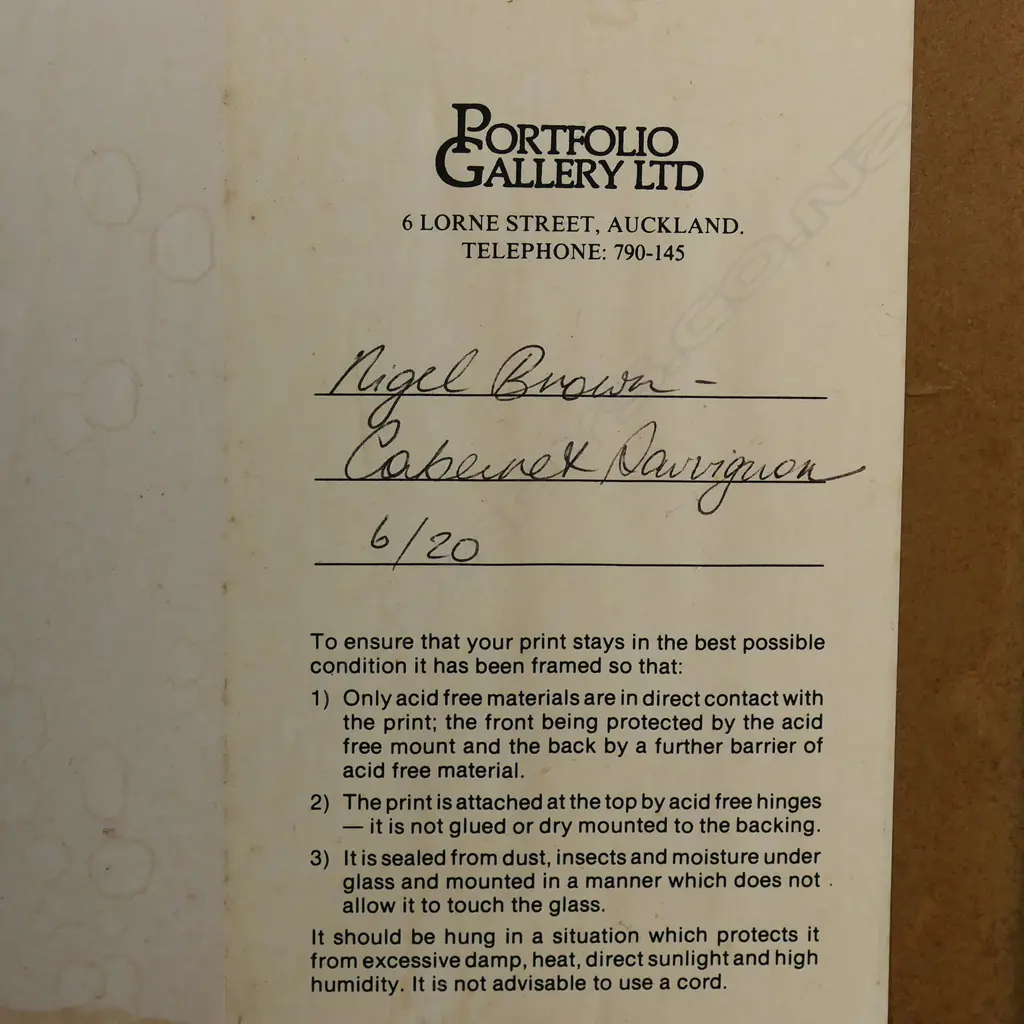 PORTFOLIO
GALLERY LTD
6 LORNE STREET, AUCKLAND.
TELEPHONE: 790-145
Nigel Brown -
Cabernet Sauvignon
6/20
To ensure that your print stays in the best possible
condition it has been framed so that:
1) Only acid free materials are in direct contact with
the print; the front being protected by the acid
free mount and the back by a further barrier of
acid free material.
2) The print is attached at the top by acid free hinges
— it is not glued or dry mounted to the backing.
3) It is sealed from dust, insects and moisture under
glass and mounted in a manner which does not
allow it to touch the glass.
It should be hung in a situation which protects it
from excessive damp, heat, direct sunlight and high
humidity. It is not advisable to use a cord.